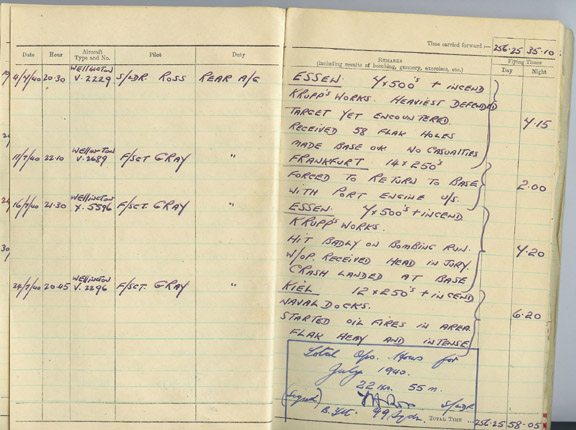 Time carried forward :— 256.25 35.10
Date Hour Aircraft Type and No. Pilot Duty
REMARKS
(Including results of bombing, gunnery, exercises, etc.)
Flying Times
Day Night
4/7/40 20.30 WELLINGTON V.2229 S/LDR ROSS REAR A/G
ESSEN. 4x500's + INCEND
KRUPP'S WORKS. HEAVIEST DEFENDED
TARGET YET ENCOUNTERED.
RECEIVED 58 FLAK HOLES
MADE BASE OK NO CASUALTIES
4.15
11/7/40 22.10 WELLINGTON F/SGT GRAY "
FRANKFURT 14x250's
FORCED TO RETURN TO BASE
WITH PORT ENGINE U/S.
2.00
21.30 WELLINGTON F/SGT. GRAY "
ESSEN. 4x500's + INCEND
KRUPP'S WORKS.
HIT BADLY ON BOMBING RUN.
W/OP. RECEIVED HEAD INJURY.
CRASH LANDED AT BASE
4.20
20.45 WELLINGTON V.2296 F/SGT. GRAY "
KIEL 12x250's + INCEND
NAVAL DOCKS.
STARTED OIL FIRES IN AREA.
FLAK HEAVY AND INTENSE
6.20
Total Ops. Hours for
July 1940.
22 hrs. 55 m.
(Signed) S/LDR
99 Sqdn.
TOTAL TIME 256.25 58.05